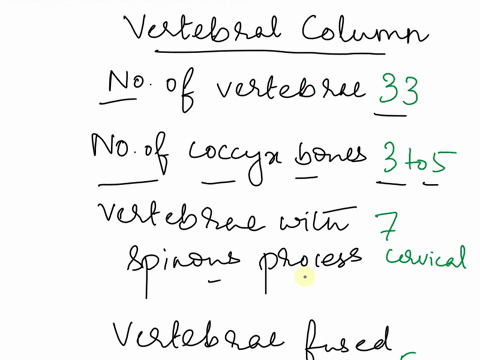 Vertebral Column
No. of vertebrae 33
No. of coccyx bones 3 to 5
Vertebrae with 7
spinous process cervical
Vertebrae fused